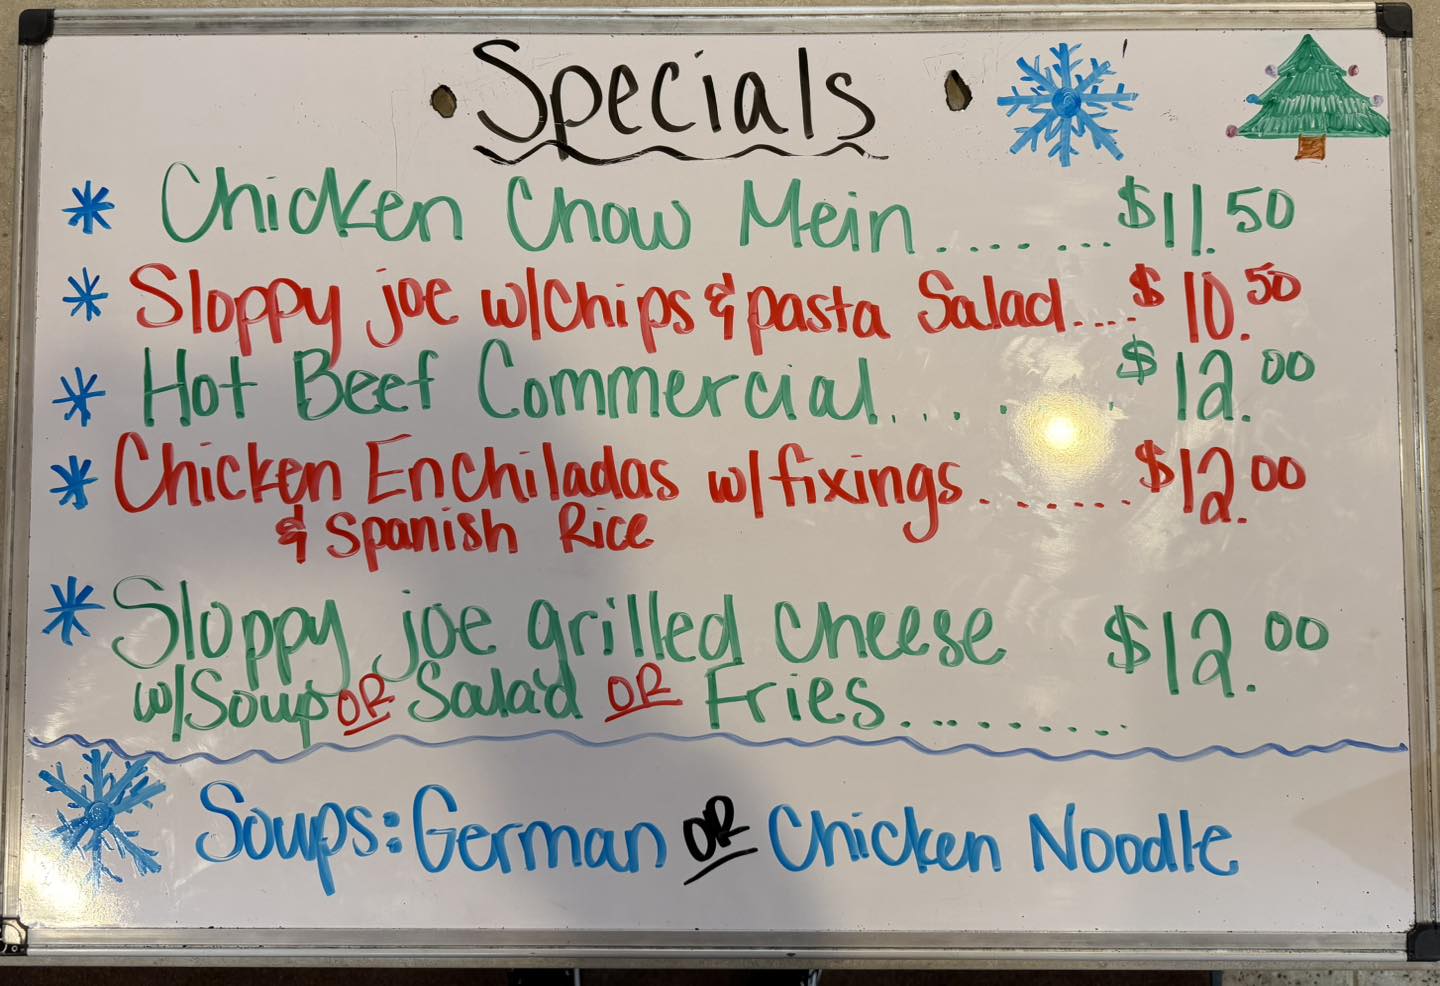 Specials
Chicken Chow Mein........$11.50
Sloppy joe w/chips & pasta Salad....$10.50
Hot Beef Commercial.....$12.00
Chicken Enchiladas w/fixings.......$12.00
& Spanish Rice
Sloppy joe grilled cheese $12.00
w/Soup OR Salad OR Fries.........
Soups: German OR Chicken Noodle